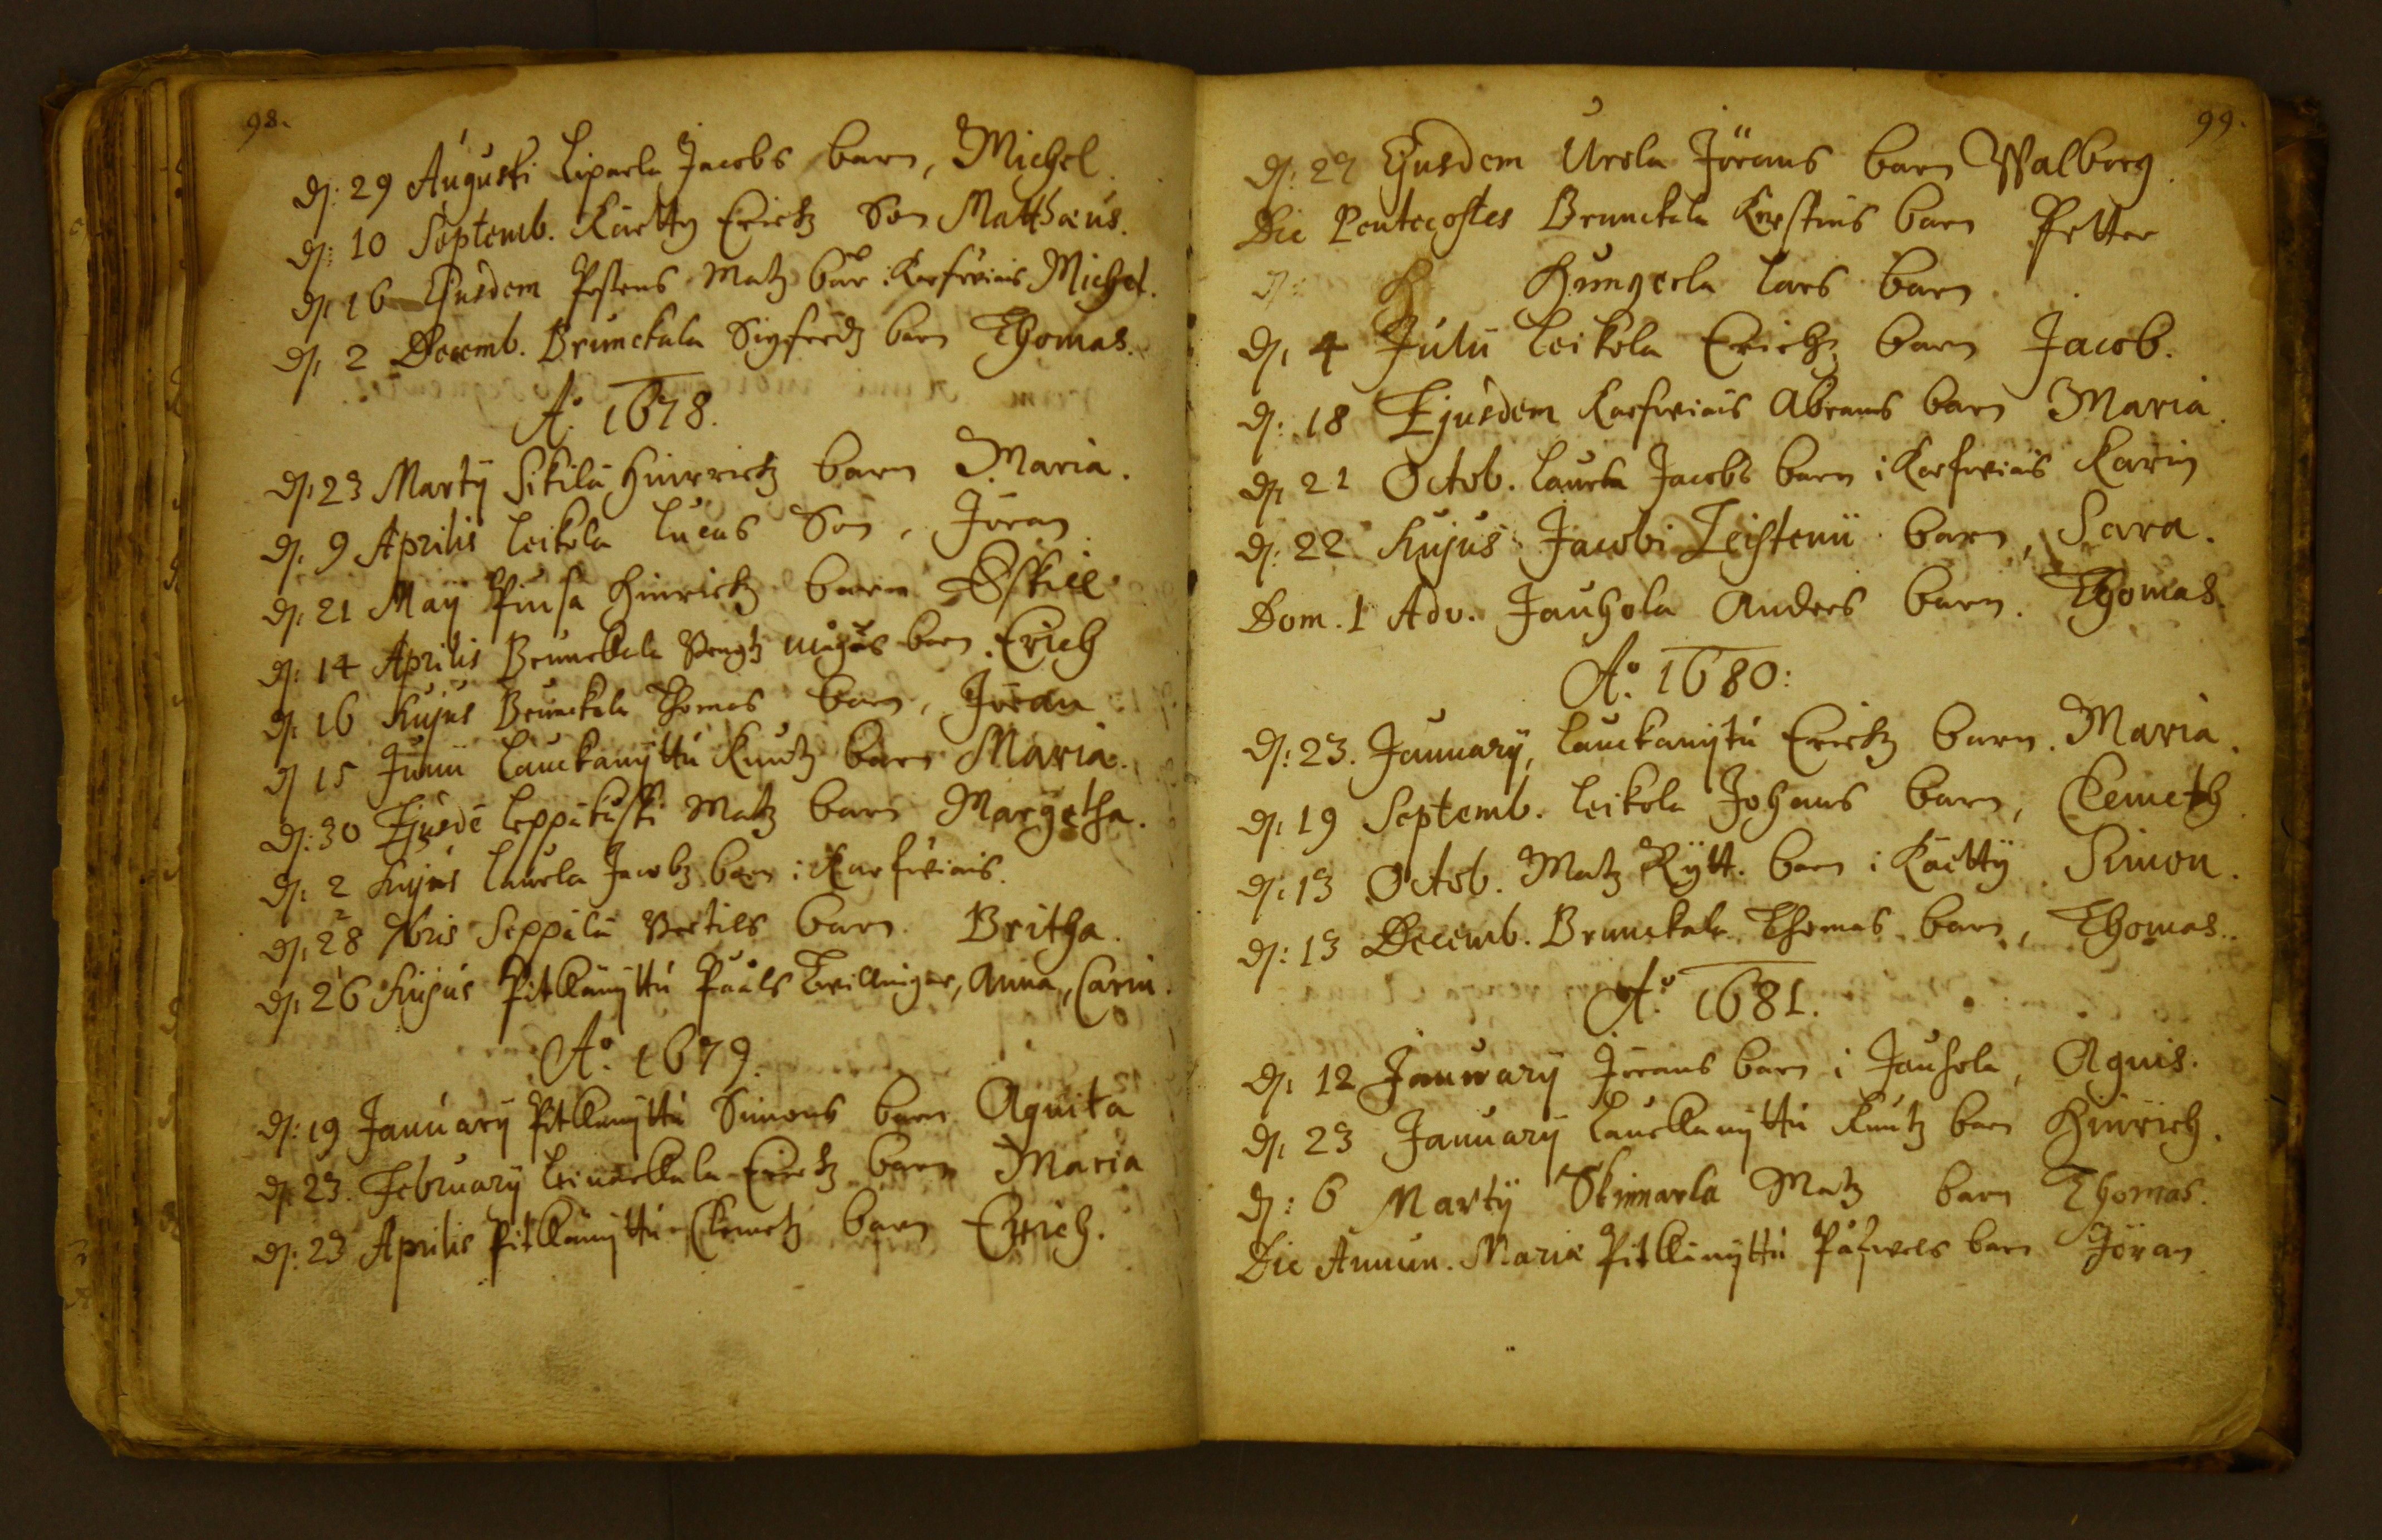 98.
dj: 29 Augusti Liparla Jacobs barn, Michel.
dj: 10 Septemb. Kärtty Erichz Son Matthæus.
dj: 16 Ejusdem Matz bar i Karfwiais Michel.
dj: 2 Decemb. Brunckala Sigfredz barn Thomas.
A:o 1678.
dj: 23 Martij Sikilä Hinrichz barn Maria.
dj: 9 Aprilis Leikola Lucas Son, Jöran
dj: 21 Maij Piusa Hinrichz barn Eskill
dj: 14 Aprilis Brunckala Bengtz barn. Erich
dj: 16 Hujus Brunckala Thomas barn, Jöran
dj 15 Junii Lauckanyttu Knutz barn Maria.
dj: 30 Ejusdē Leppäkåski Matz barn Margetha.
dj: 2 Hujus Laurla Jacobz barn i Karfwiais.
dj: 28 Xbris Seppälä Bertils barn Britha.
dj: 26 Hujus Pitkänyttu Pååls Twillingar, Anna, Carin.
A:o 1679.
dj: 19 Januarij Pitkänyttu Simons barn Agnita
dj: 23. Februarij Erichz barn Maria
dj: 23 Aprilis Pitkänyttu Clemetz barn Erich.
99.
dj: 29 Ejusdem Urola Jörans barn Walborg.
Die Pentecostes Brunckala Kirstins barn Petter
dj: Hungerla Lars barn
dj: 4 Julii Leikola Erichz barn Jacob.
dj: 18 Ejusdem Karfwiais Abrams barn Maria.
dj: 21 Octob. Laurla Jacobs barn i Karfwiais Karin
dj: 22 Hujus Jacobi Leistenii barn, Sara.
Dom. 1 Adv. Jauhola Anders barn. Thomas.
A:o 1680:
dj: 23. Januarij, Lauckanytu Erichz barn. Maria.
dj: 19 Septemb. Leikola Johans barn, Clemeth
dj: 13 Octob. Matz Rytt. barn i Kärtty Simon.
dj: 13 Decemb. Brunckala Thomas barn, Thomas.
A:o 1681.
dj: 12 Januarij Jörans barn i Jauhola, Agnis.
dj: 23 Januarij Lauckanyttu Knutz barn Hinrich.
dj: 6 Martij Skinnarla Matz barn Thomas.
Die Annun. Mariæ Pitkänyttu Påfwels barn Jöran